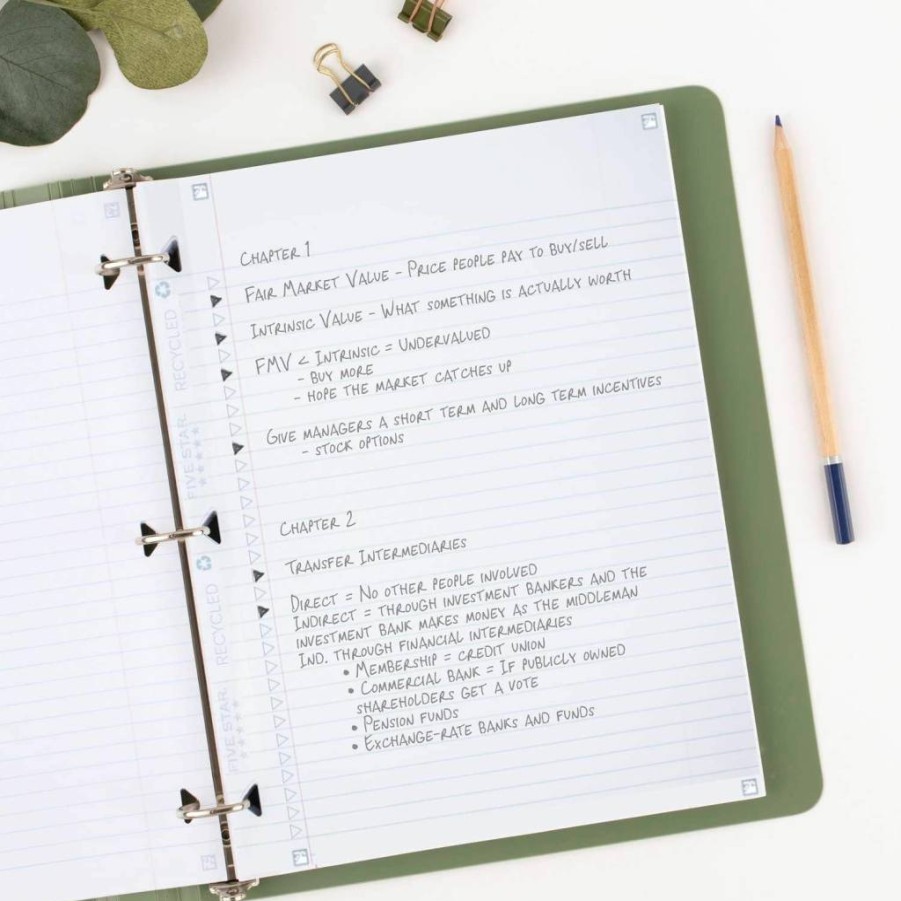 CHAPTER 1
FAIR MARKET VALUE - PRICE PEOPLE PAY TO BUY/SELL
INTRINSIC VALUE - WHAT SOMETHING IS ACTUALLY WORTH
FMV < INTRINSIC = UNDERVALUED
- BUY MORE
- HOPE THE MARKET CATCHES UP
GIVE MANAGERS A SHORT TERM AND LONG TERM INCENTIVES
- STOCK OPTIONS
CHAPTER 2
TRANSFER INTERMEDIARIES
DIRECT = NO OTHER PEOPLE INVOLVED
INDIRECT = THROUGH INVESTMENT BANKERS AND THE
INVESTMENT BANK MAKES MONEY AS THE MIDDLEMAN
IND. THROUGH FINANCIAL INTERMEDIARIES
• MEMBERSHIP = CREDIT UNION
• COMMERCIAL BANK = IF PUBLICLY OWNED
SHAREHOLDERS GET A VOTE
• PENSION FUNDS
• EXCHANGE-RATE BANKS AND FUNDS
FIVE STAR RECYCLED
FIVE STAR RECYCLED